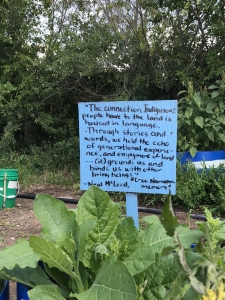 "The connection Indigenous
people have to the land is
housed in language.
Through stories and
words, we hold the echo
of generational experie-
nce, and engagement w/ land
... (it) grounds us and
binds us with other
living beings" "Cree Narrative
-Neal McLeod, memory"